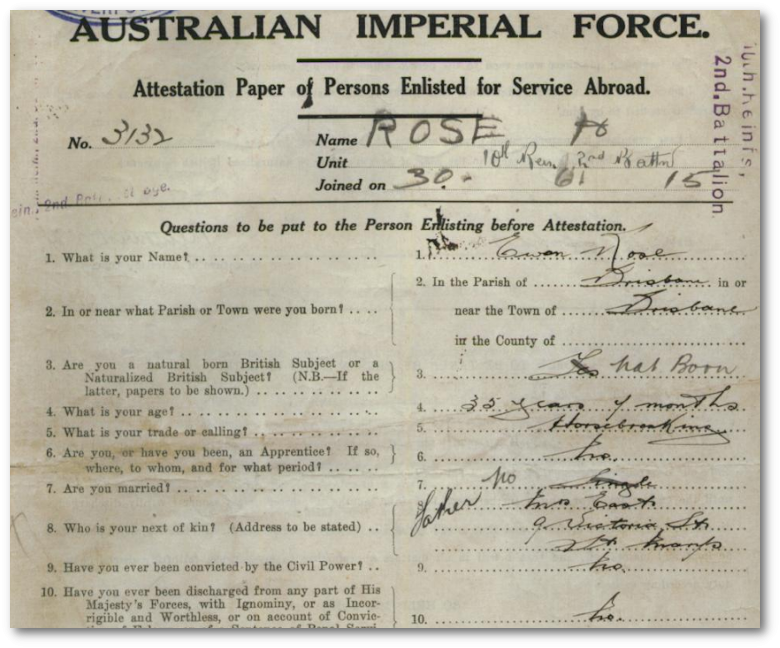 AUSTRALIAN IMPERIAL FORCE.
Attestation Paper of Persons Enlisted for Service Abroad.
No. 3132
Name ROSE
Unit 10th Rein 2nd Battn
Joined on 30. 6 15
2nd. Battalion.
Questions to be put to the Person Enlisting before Attestation.
1. What is your Name? 1. Ewen Rose
2. In or near what Parish or Town were you born? 2. In the Parish of Brisbane in or
near the Town of Brisbane
in the County of
3. Are you a natural born British Subject or a
Naturalized British Subject? (N.B.—If the
latter, papers to be shown.) 3. Yes Nat Born
4. What is your age? 4. 35 years 4 months
5. What is your trade or calling? 5. Horsebreaking
6. Are you, or have you been, an Apprentice? If so,
where, to whom, and for what period? 6. No.
7. Are you married? 7. No Single
8. Who is your next of kin? (Address to be stated) 8. Mrs East
Father 9 Victoria St
9. Have you ever been convicted by the Civil Power? 9. No.
10. Have you ever been discharged from any part of His
Majesty's Forces, with Ignominy, or as Incor-
rigible and Worthless, or on account of Convic- 10. No.